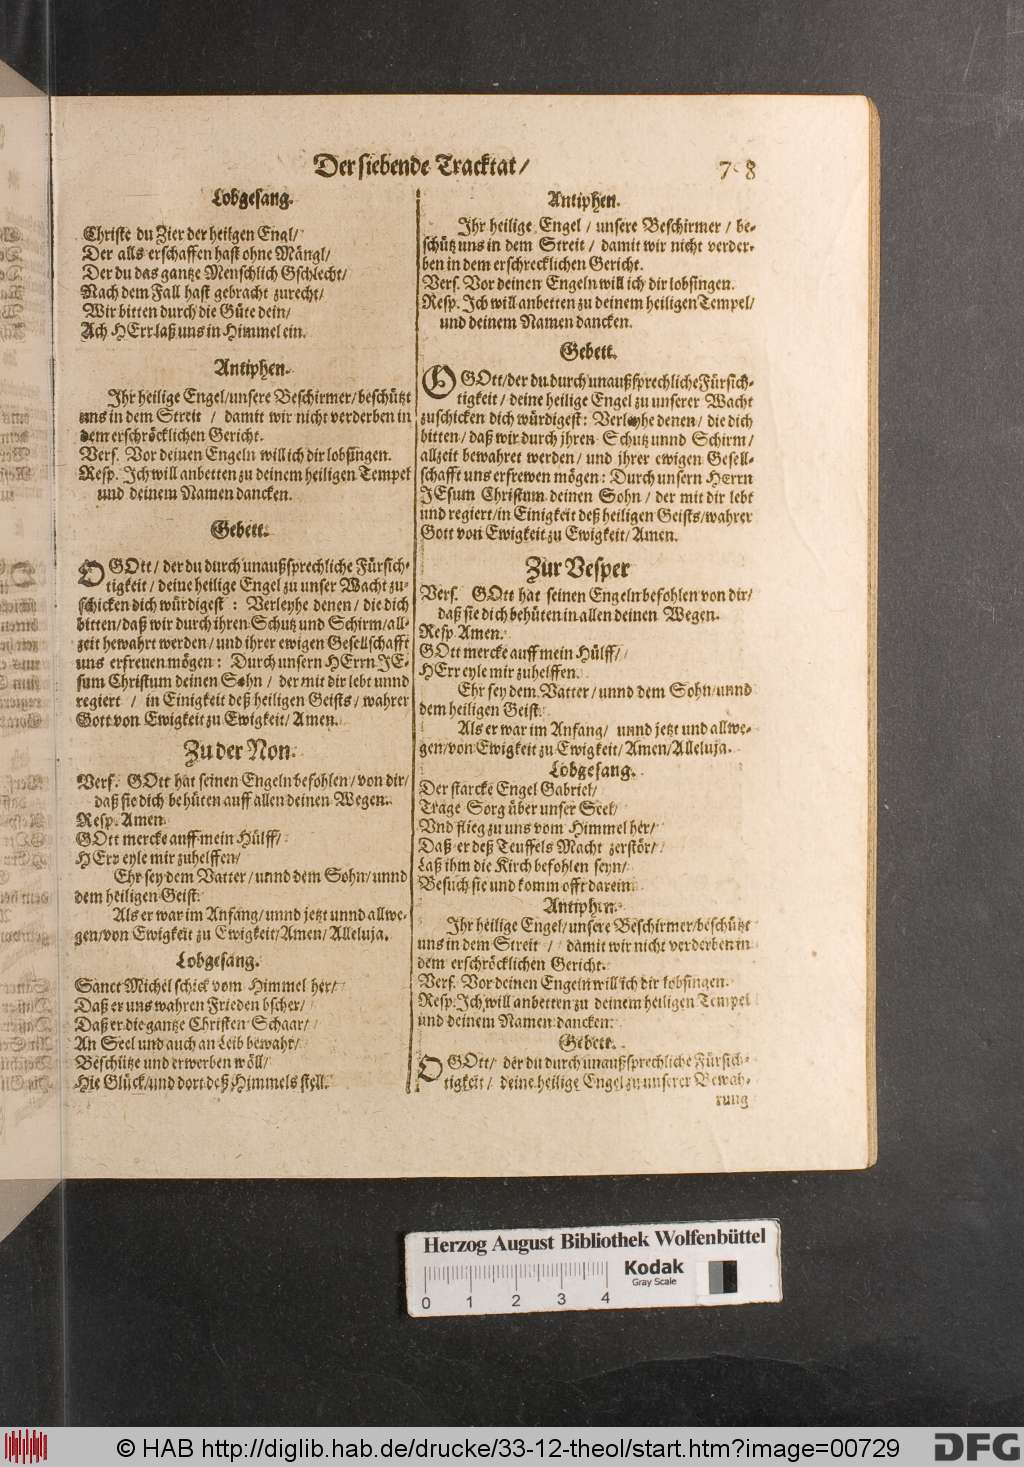 Der siebende Tracktat/
7 8
Lobgesang.
Christe du Zier der heilgen Engl/
Der alls erschaffen hast ohne Mängl/
Der du das gantze Menschlich Gschlecht/
Nach dem Fall hast gebracht zurecht/
Wir bitten durch die Güte dein/
Ach HErr laß uns in Himmel ein.
Antiphen.
Ihr heilige Engel/unsere Beschirmer/beschützt
uns in dem Streit / damit wir nicht verderben in
dem erschröcklichen Gericht.
Vers. Vor deinen Engeln will ich dir lobsingen.
Resp. Ich will anbetten zu deinem heiligen Tempel
und deinem Namen dancken.
Gebett.
O GOtt / der du durch unaußsprechliche Fürsich-
tigkeit / deine heilige Engel zu unser Wacht zu-
schicken dich würdigest : Verleyhe denen / die dich
bitten/daß wir durch ihren Schutz und Schirm/all-
zeit bewahrt werden/und ihrer ewigen Gesellschafft
uns erfreuen mögen : Durch unsern HErrn JE-
sum Christum deinen Sohn / der mit dir lebt unnd
regiert / in Einigkeit deß heiligen Geists/ wahrer
Gott von Ewigkeit zu Ewigkeit/ Amen.
Zu der Non.
Vers. GOtt hat seinen Engeln befohlen/ von dir/
daß sie dich behüten auff allen deinen Wegen.
Resp. Amen.
GOtt mercke auff mein Hülff/
HErr eyle mir zuhelffen/
Ehr sey dem Vatter/ unnd dem Sohn/ unnd
dem heiligen Geist.
Als er war im Anfang/ unnd jetzt unnd allwe-
gen/von Ewigkeit zu Ewigkeit/Amen/ Alleluja.
Lobgesang.
Sanct Michel schick vom Himmel her/
Daß er uns wahren Frieden bscher/
Daß er die gantze Christen Schaar/
An Seel und auch an Leib bewahr/
Beschütze und erwerben wöll/
Hie Glück/und dort deß Himmels stell.
Antiphen.
Ihr heilige Engel / unsere Beschirmer / be-
schütz uns in dem Streit / damit wir nicht verder-
ben in dem erschrecklichen Gericht.
Vers. Vor deinen Engeln will ich dir lobsingen.
Resp. Ich will anbetten zu deinem heiligen Tempel/
und deinem Namen dancken.
Gebett.
O GOtt/der du durch unaußsprechliche Fürsich-
tigkeit / deine heilige Engel zu unserer Wacht
zuschicken dich würdigest: Verleyhe denen / die dich
bitten / daß wir durch jhren Schutz unnd Schirm/
allzeit bewahret werden/ und jhrer ewigen Gesell-
schafft uns erfrewen mögen: Durch unsern HErrn
JEsum Christum deinen Sohn / der mit dir lebt
und regiert/in Einigkeit deß heiligen Geists/wahrer
Gott von Ewigkeit zu Ewigkeit/ Amen.
Zur Vesper
Vers. GOtt hat seinen Engeln befohlen von dir/
daß sie dich behüten in allen deinen Wegen.
Resp Amen.
GOtt mercke auff mein Hülff/
HErr eyle mir zuhelffen.
Ehr sey dem Vatter/ unnd dem Sohn/unnd
dem heiligen Geist.
Als er war im Anfang/ unnd jetzt und allwe-
gen/von Ewigkeit zu Ewigkeit/Amen/Alleluja.
Lobgesang.
Der starcke Engel Gabriel/
Trage Sorg über unser Seel/
Vnd flieg zu uns vom Himmel her/
Daß er deß Teuffels Macht zerstör/
Laß ihm die Kirch befohlen seyn/
Besuch sie und komm offt darein.
Antiphen.
Ihr heilige Engel/unsere Beschirmer/beschützt
uns in dem Streit / damit wir nicht verderben in
dem erschröcklichen Gericht.
Vers. Vor deinen Engeln will ich dir lobsingen.
Resp. Ich will anbetten zu deinem heiligen Tempel
und deinem Namen dancken.
Gebett.
O GOtt/ der du durch unaußsprechliche Fürsich-
tigkeit / deine heilige Engel zu unserer Bewah-
rung
Herzog August Bibliothek Wolfenbüttel
Kodak
Gray Scale
0 1 2 3 4
© HAB http://diglib.hab.de/drucke/33-12-theol/start.htm?image=00729
DFG